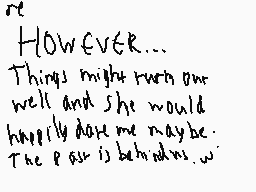 re
HOWEVER...
Things might turn out
well and she would
happily date me maybe.
The past is behind us. w